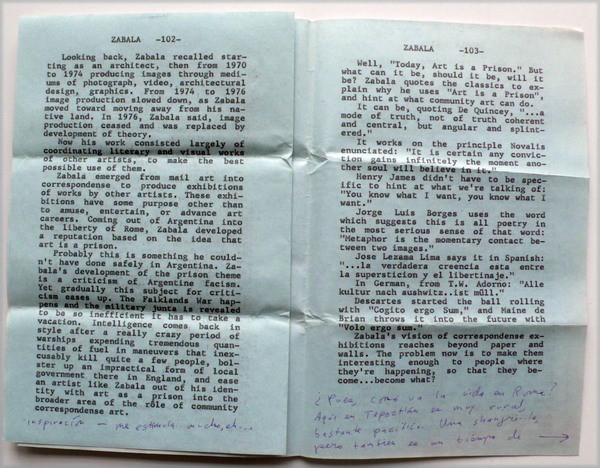 ZABALA -102-
Looking back, Zabala recalled star-
ting as an architect, then from 1970
to 1974 producing images through medi-
ums of photograph, video, architectural
design, graphics. From 1974 to 1976
image production slowed down, as Zabala
moved toward moving away from his na-
tive land. In 1976, Zabala said, image
production ceased and was replaced by
development of theory.
Now his work consisted largely of
coordinating literary and visual works
of other artists, to make the best
possible use of them.
Zabala emerged from mail art into
correspondense to produce exhibitions
of works by other artists. These exhi-
bitions have some purpose other than
to amuse, entertain, or advance art
careers. Coming out of Argentina into
the liberty of Rome, Zabala developed
a reputation based on the idea that
art is a prison.
Probably this is something he could-
n't have done safely in Argentina. Za-
bala's development of the prison theme
is a criticism of Argentine facism.
Yet gradually this subject for criti-
cism eases up. The Falklands War hap-
pens and the military junta is revealed
to be so inefficient it has to take a
vacation. Intelligence comes back in
style after a really crazy period of
warships expending tremendous quan-
tities of fuel in maneuvers that inex-
cusably kill quite a few people, bol-
ster up an impractical form of local
government there in England, and ease
an artist like Zabala out of his iden-
tity with art as a prison into the
broader area of the rôle of community
correspondense art.
inspiración - me estimula mucho, eh...
ZABALA -103-
Well, "Today, Art is a Prison." But
what can it be, should it be, will it
be? Zabala quotes the classics to ex-
plain why he uses "Art is a Prison",
and hint at what community art can do.
It can be, quoting De Quincey, "...a
mode of truth, not of truth coherent
and central, but angular and splint-
ered."
It works on the principle Novalis
enunciated: "It is certain any convic-
tion gains infinitely the moment ano-
ther soul will believe in it."
Henry James didn't have to be spec-
ific to hint at what we're talking of:
"You know what I want, you know what I
want."
Jorge Luis Borges uses the word
which suggests this is all poetry in
the most serious sense of that word:
"Metaphor is the momentary contact be-
tween two images."
Jose Lezama Lima says it in Spanish:
"...la verdadera creencia esta entre
la supersticion y el libertinaje."
In German, from T.W. Adorno: "Alle
kultur nach aushwitz..ist müll."
Descartes started the ball rolling
with "Cogito ergo Sum," and Maine de
Brian throws it into the future with
"Volo ergo sum."
Zabala's vision of correspondense ex-
hibitions reaches beyond paper and
walls. The problem now is to make them
interesting enough to people where
they're happening, so that they be-
come...become what?
¿Pues, como va la vida en Roma?
Aquí en Tepoztlán es muy rural,
bastante pacífico. Una shangri-la,
pero tambien es un tiempo de →